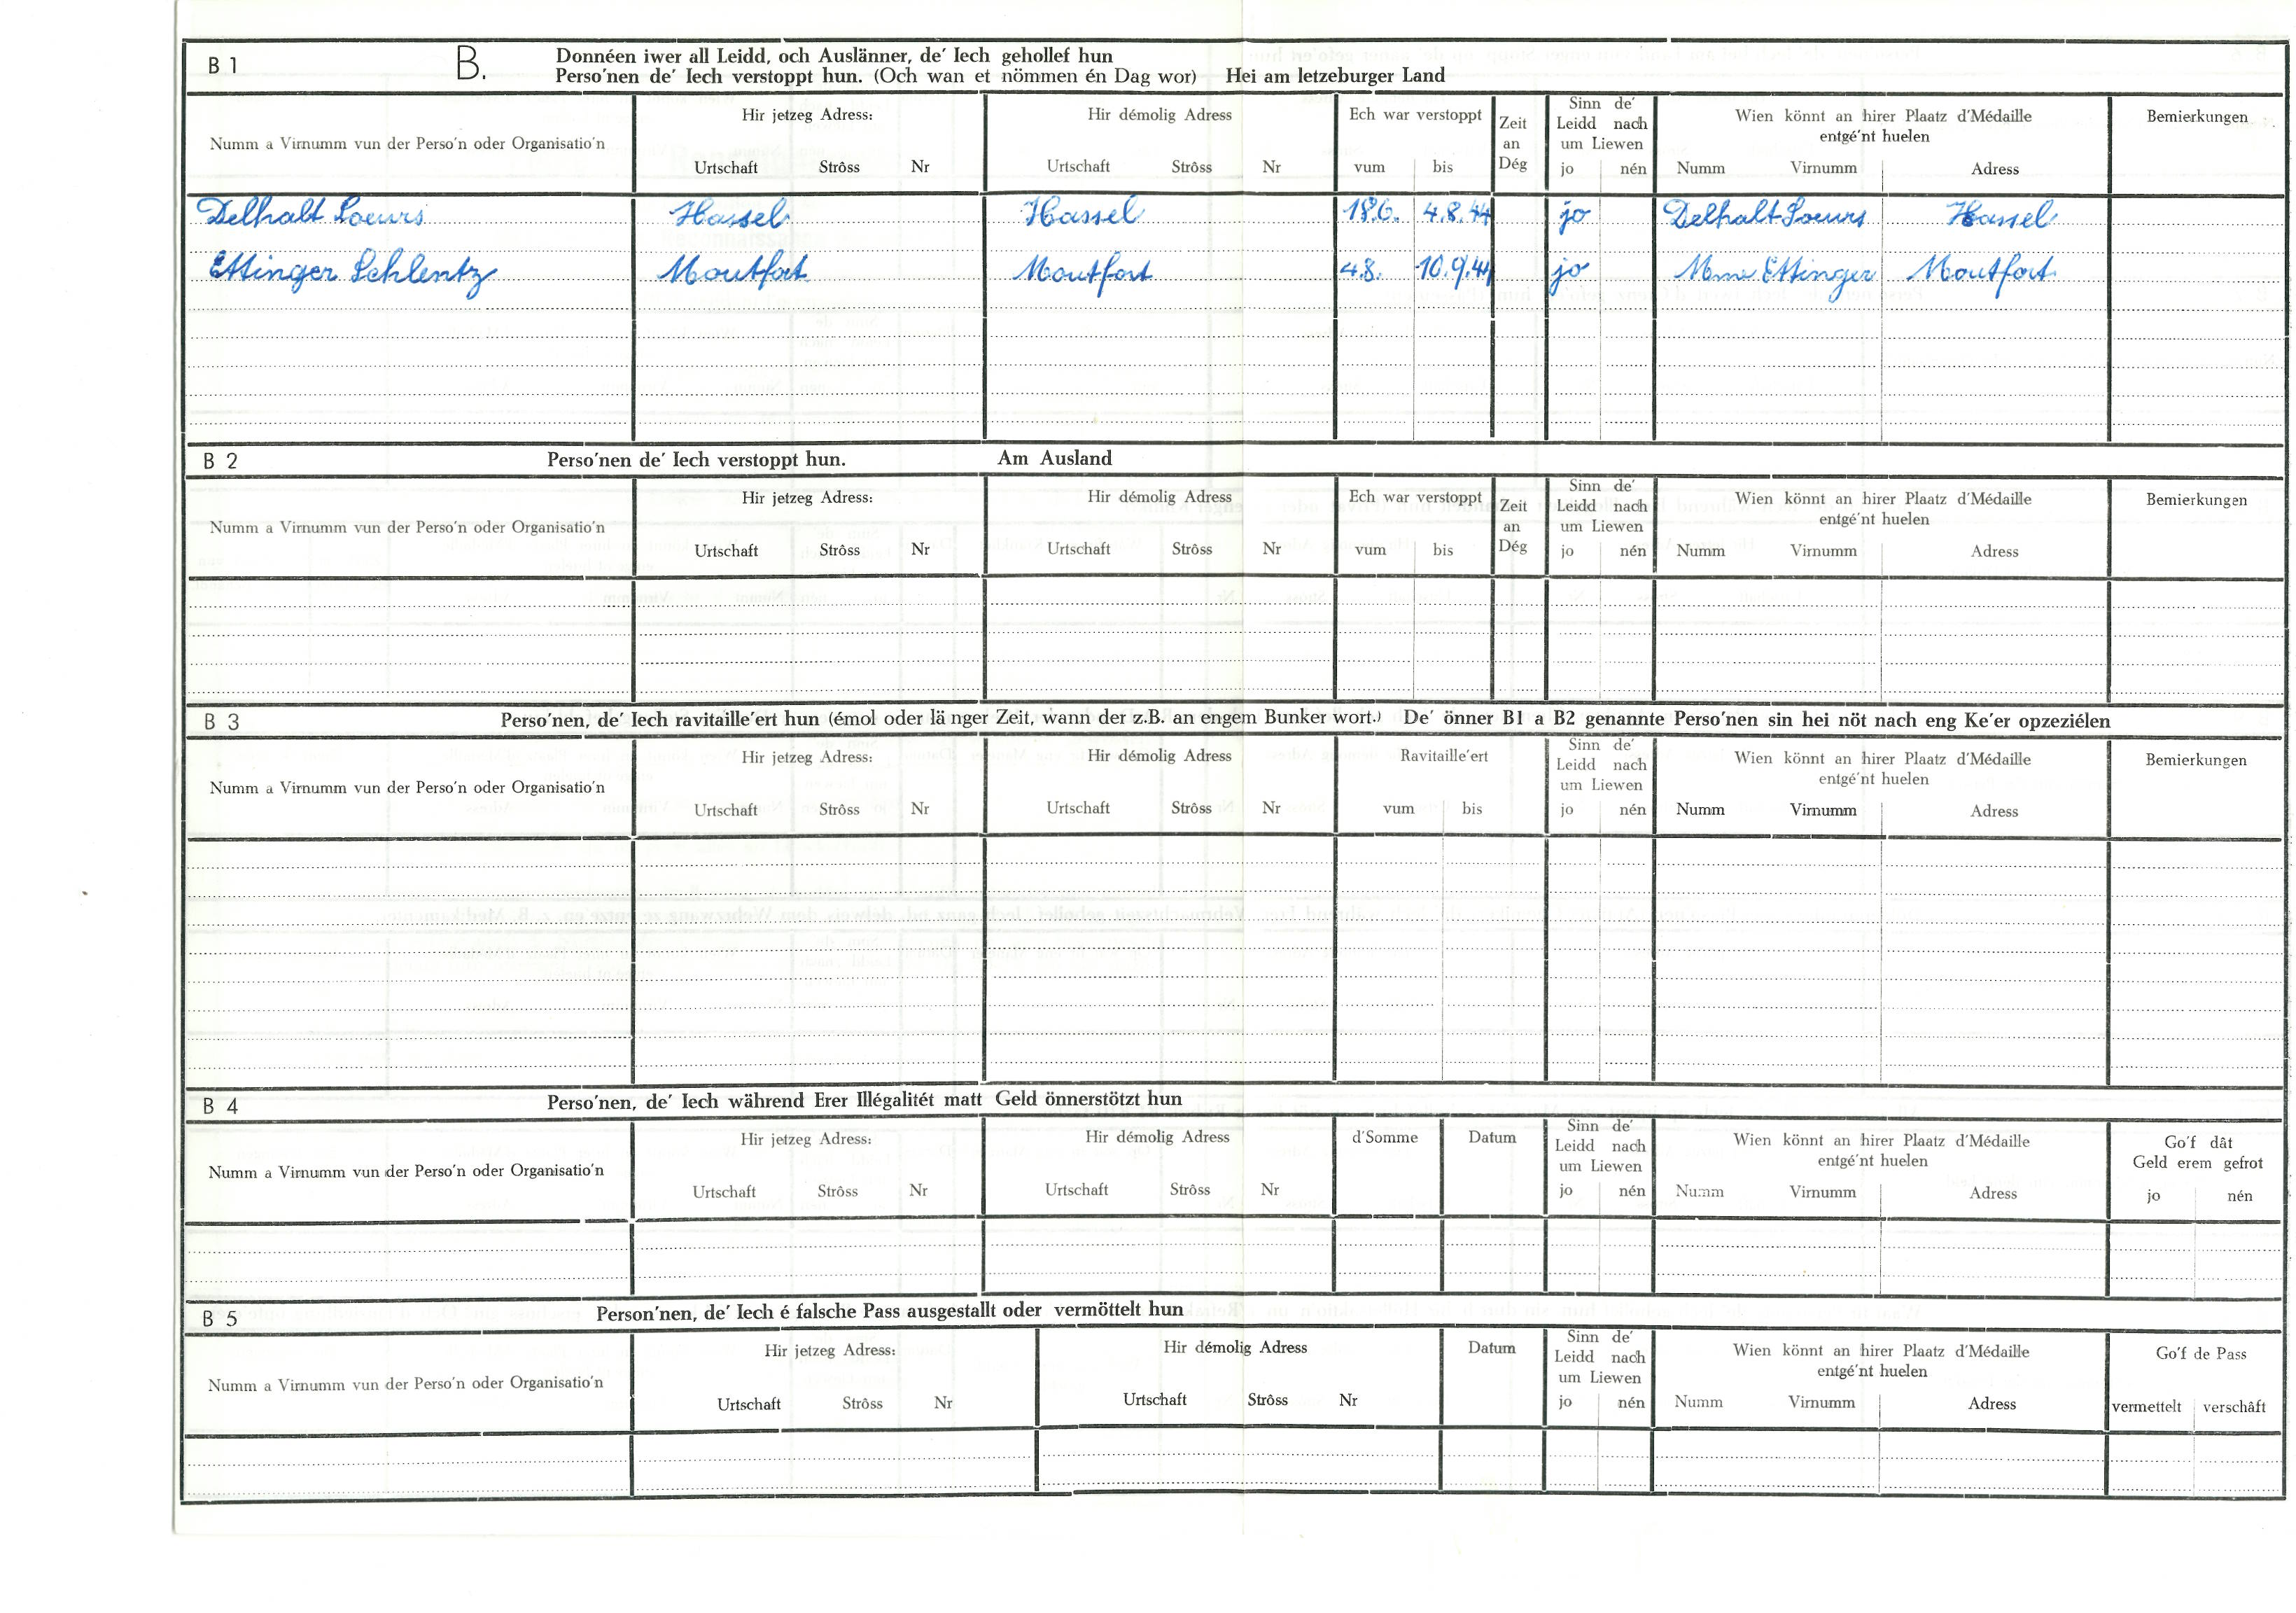 B 1
B.
Donnéen iwer all Leidd, och Auslänner, de′ Iech gehollef hun
Perso′nen de′ Iech verstoppt hun. (Och wan et nömmen én Dag wor) Hei am letzeburger Land
Numm a Virnumm vun der Perso′n oder Organisatio′n
Hir jetzeg Adress:
Urtschaft Strôss Nr
Hir démolig Adress
Urtschaft Strôss Nr
Ech war verstoppt
vum bis
Zeit
an
Dég
Sinn de′
Leidd nach
um Liewen
jo nén
Wien könnt an hirer Plaatz d′Médaille
entgé′nt huelen
Numm Virnumm Adress
Bemierkungen
Delhalt Soeurs Hassel Hassel 18.6. 4.8.44 jo Delhalt Soeurs Hassel
Ettinger Schlentz Moutfort Moutfort 4.8. 10.9.44 jo Mme Ettinger Moutfort
B 2
Perso′nen de′ Iech verstoppt hun. Am Ausland
Numm a Virnumm vun der Perso′n oder Organisatio′n
Hir jetzeg Adress:
Urtschaft Strôss Nr
Hir démolig Adress
Urtschaft Strôss Nr
Ech war verstoppt
vum bis
Zeit
an
Dég
Sinn de′
Leidd nach
um Liewen
jo nén
Wien könnt an hirer Plaatz d′Médaille
entgé′nt huelen
Numm Virnumm Adress
Bemierkungen
B 3
Perso′nen, de′ Iech ravitaille′ert hun (émol oder länger Zeit, wann der z.B. an engem Bunker wort.) De′ önner B1 a B2 genannte Perso′nen sin hei nöt nach eng Ke′er opzeziélen
Numm a Virnumm vun der Perso′n oder Organisatio′n
Hir jetzeg Adress:
Urtschaft Strôss Nr
Hir démolig Adress
Urtschaft Strôss Nr
Ravitaille′ert
vum bis
Sinn de′
Leidd nach
um Liewen
jo nén
Wien könnt an hirer Plaatz d′Médaille
entgé′nt huelen
Numm Virnumm Adress
Bemierkungen
B 4
Perso′nen, de′ Iech während Erer Illégalitét matt Geld önnerstötzt hun
Numm a Virnumm vun der Perso′n oder Organisatio′n
Hir jetzeg Adress:
Urtschaft Strôss Nr
Hir démolig Adress
Urtschaft Strôss Nr
d′Somme
Datum
Sinn de′
Leidd nach
um Liewen
jo nén
Wien könnt an hirer Plaatz d′Médaille
entgé′nt huelen
Numm Virnumm Adress
Go′f dât
Geld erem gefrot
jo nén
B 5
Person′nen, de′ Iech é falsche Pass ausgestallt oder vermöttelt hun
Numm a Virnumm vun der Perso′n oder Organisatio′n
Hir jetzeg Adress:
Urtschaft Strôss Nr
Hir démolig Adress
Urtschaft Strôss Nr
Datum
Sinn de′
Leidd nach
um Liewen
jo nén
Wien könnt an hirer Plaatz d′Médaille
entgé′nt huelen
Numm Virnumm Adress
Go′f de Pass
vermettelt verschâft